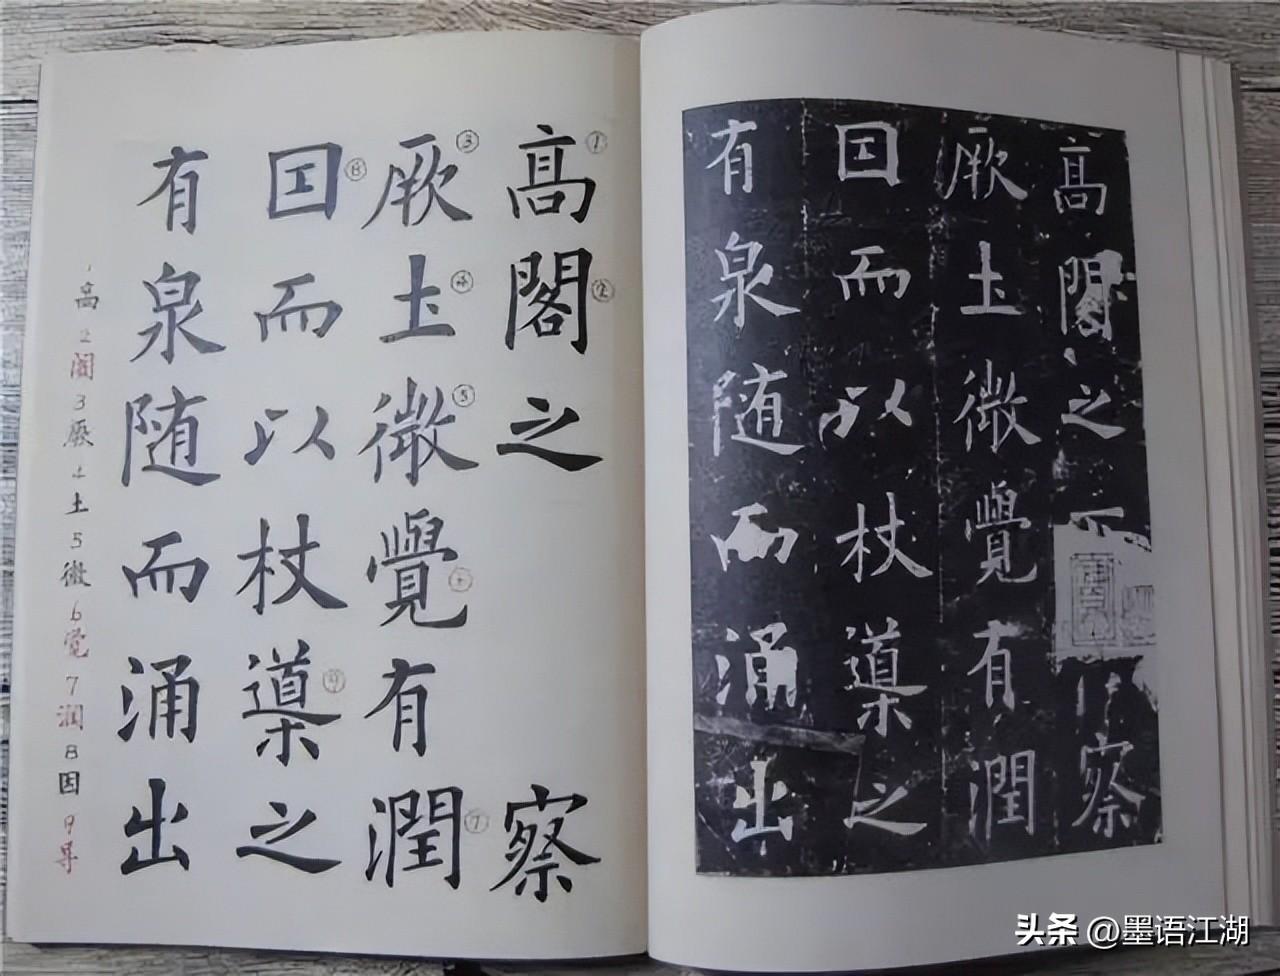 高①閣②之察
厥③圡④微⑤覺⑥有潤⑦
囙⑧而以杖導⑨之
有泉随而涌出
1高2阁3厥4土5微6觉7润8因9导
高閣之察
厥圡微覺有潤
囙而以杖導之
有泉随而涌出
头条 @墨语江湖